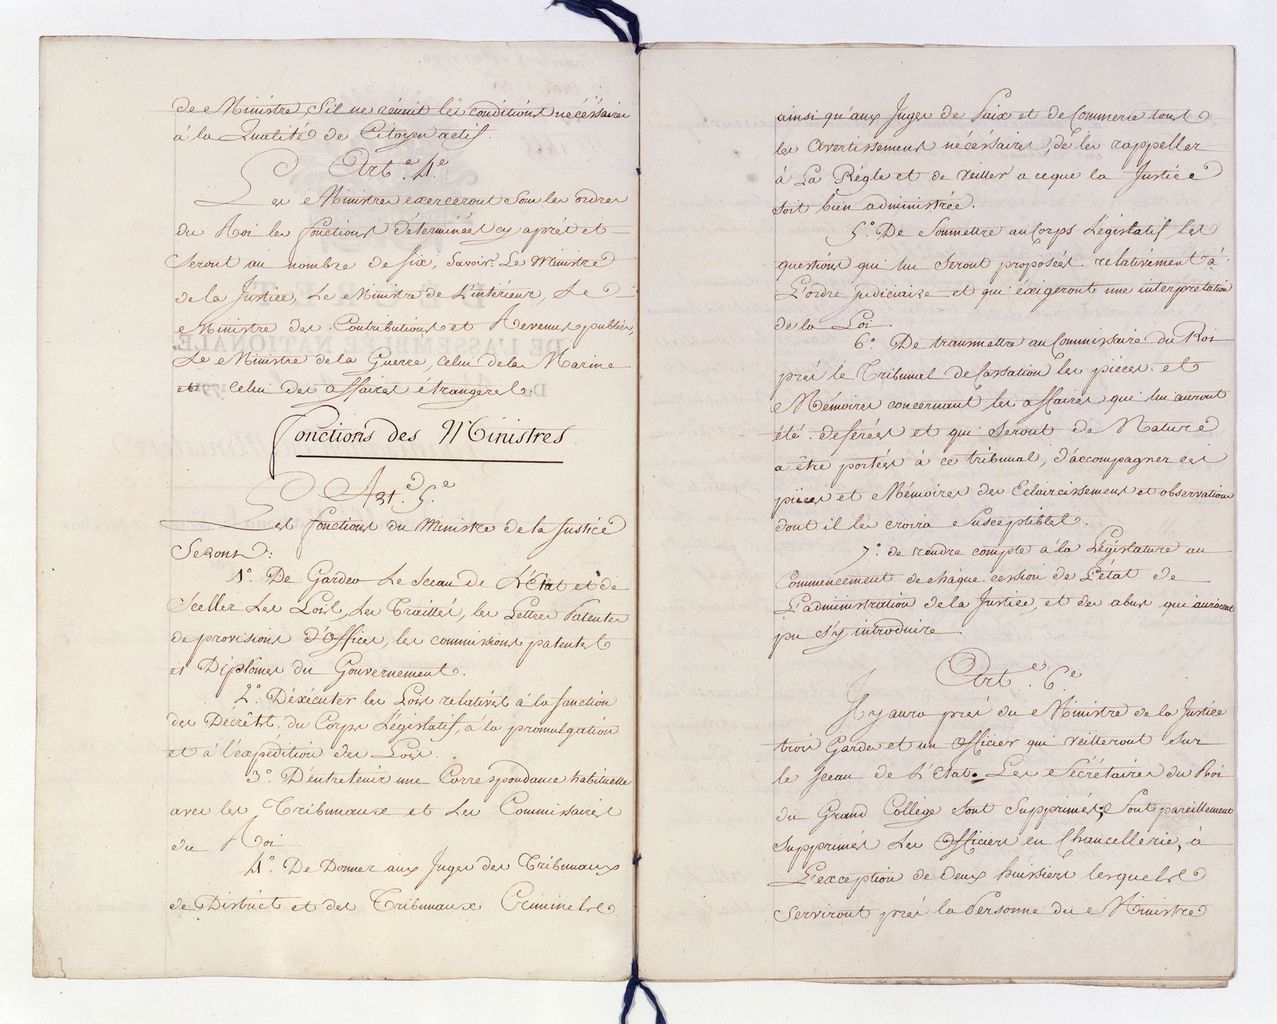 de Ministre, s'il ne réunit les conditions nécéssaires
à la Qualité de Citoyen actif.
Art.e 4.e
Les Ministres exerceront sous les ordres
du Roi les fonctions détérminées cy après et
seront au nombre de six, savoir. Le Ministre
de la Justice, Le Ministre de L'intérieur, Le
Ministre des Contributions et Revenus publics,
Le Ministre de la Guerre, celui de la Marine
et celui des affaires étrangeres.
Fonctions des Ministres
Art. 5.e
Les fonctions du Ministre de la Justice
Seront:
1.° De Garder Le Sceau de L'État et de
Sceller Les Loix, Les Traittés, les Lettres Patentes
de provisions d'Offices, les commissions patentes
et Diplomes du Gouvernement.
2.° D'éxécuter les Loix relatives à la sanction
des Décrêts, du Corps Législatif, à la promulgation
et à l'éxpédition des Loix.
3.° D'entretenir une Correspondance habituelle
avec les Tribunaux et Les Commissaires
du Roi
4.° De Donner aux Juges des Tribunaux
de District et des Tribunaux Criminels
ainsi qu'aux Juges de Paix et de Commerce tous
les Avertissemens nécéssaires, de les rappeller
à La Régle et de veiller a ceque la Justice
soit bien administrée.
5.° De Soumettre au Corps Législatif les
questions qui lui seront proposées relativement à
L'ordre judiciaire et qui éxigeront une interprétation
de la Loi
6.° De transmettre au Commissaire du Roi
près le Tribunal de Cassation les pièces et
Mémoires concernant les affaires qui lui auront
été déférées et qui seront de Nature
a être portées à ce tribunal, d'accompagner ces
pièces et Mémoires des Eclaircissemens et observations
dont il les croira Susceptibles.
7.° de rendre compte à la Législature au
Commencement de chaque cession de L'état de
L'administration de la Justice, et des abus qui auroient
pu s'y introduire
Art. 6.e
Il y aura près du Ministre de la Justice
trois Gardes et un Officier qui veilleront sur
le Sceau de L'Etat. Les Secrétaires du Roi
du Grand Collège sont Supprimés; Sont pareillement
supprimés Les Officiers en Chancellerie, à
L'éxception de deux huissiers lesquels
serviront près la Personne du Ministre